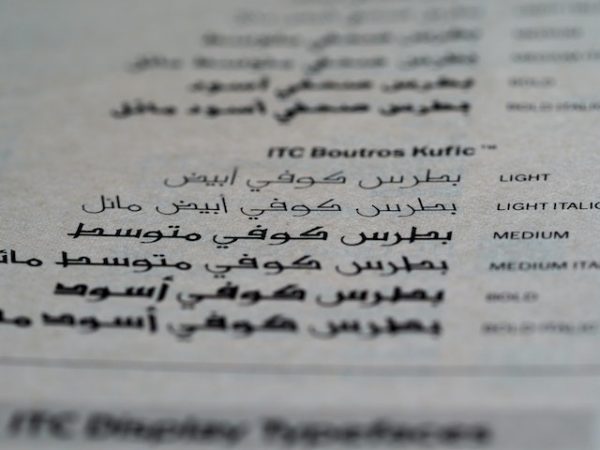 بطرس صحفي متوسط MEDIUM
بطرس صحفي متوسط مائل MEDIUM
بطرس صحفي أسود BOLD
بطرس صحفي أسود مائل BOLD ITALIC
ITC Boutros Kufic™
بطرس كوفي أبيض LIGHT
بطرس كوفي أبيض مائل LIGHT ITALIC
بطرس كوفي متوسط MEDIUM
بطرس كوفي متوسط مائ MEDIUM ITA
بطرس كوفي أسود BOLD
بطرس كوفي أسود ما BOLD ITALIC
ITC Display Typefaces